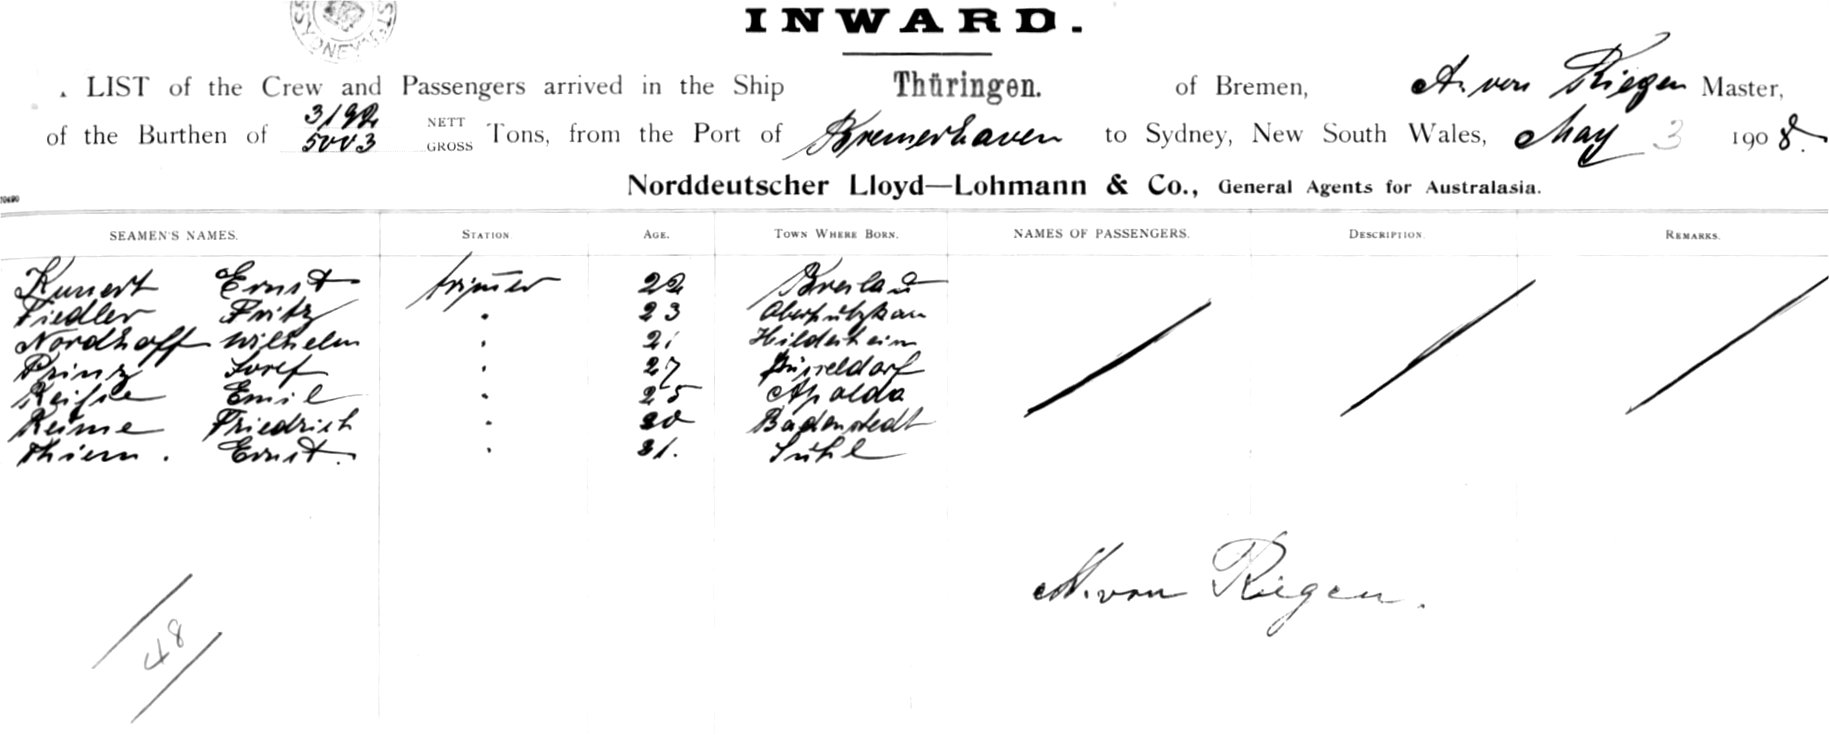 INWARD.
SYDNEY
LIST of the Crew and Passengers arrived in the Ship Thüringen. of Bremen, A. von Riegen Master,
of the Burthen of 3192 5003 NETT GROSS Tons, from the Port of Bremerhaven to Sydney, New South Wales, May 3 1908.
Norddeutscher Lloyd—Lohmann & Co., General Agents for Australasia.
SEAMEN'S NAMES. STATION AGE. TOWN WHERE BORN. NAMES OF PASSENGERS. DESCRIPTION. REMARKS.
Kunert Ernst trimmer 22 Breslau
Fiedler Fritz " 23
Nordhoff Wilhelm " 21 Hildesheim
Prinz Josef " 27 Düsseldorf
Emil " 25 Apolda
Reime Friedrich " 20 Badenstedt
Thiem. Ernst. " 31. Suhl
A. von Riegen.
48